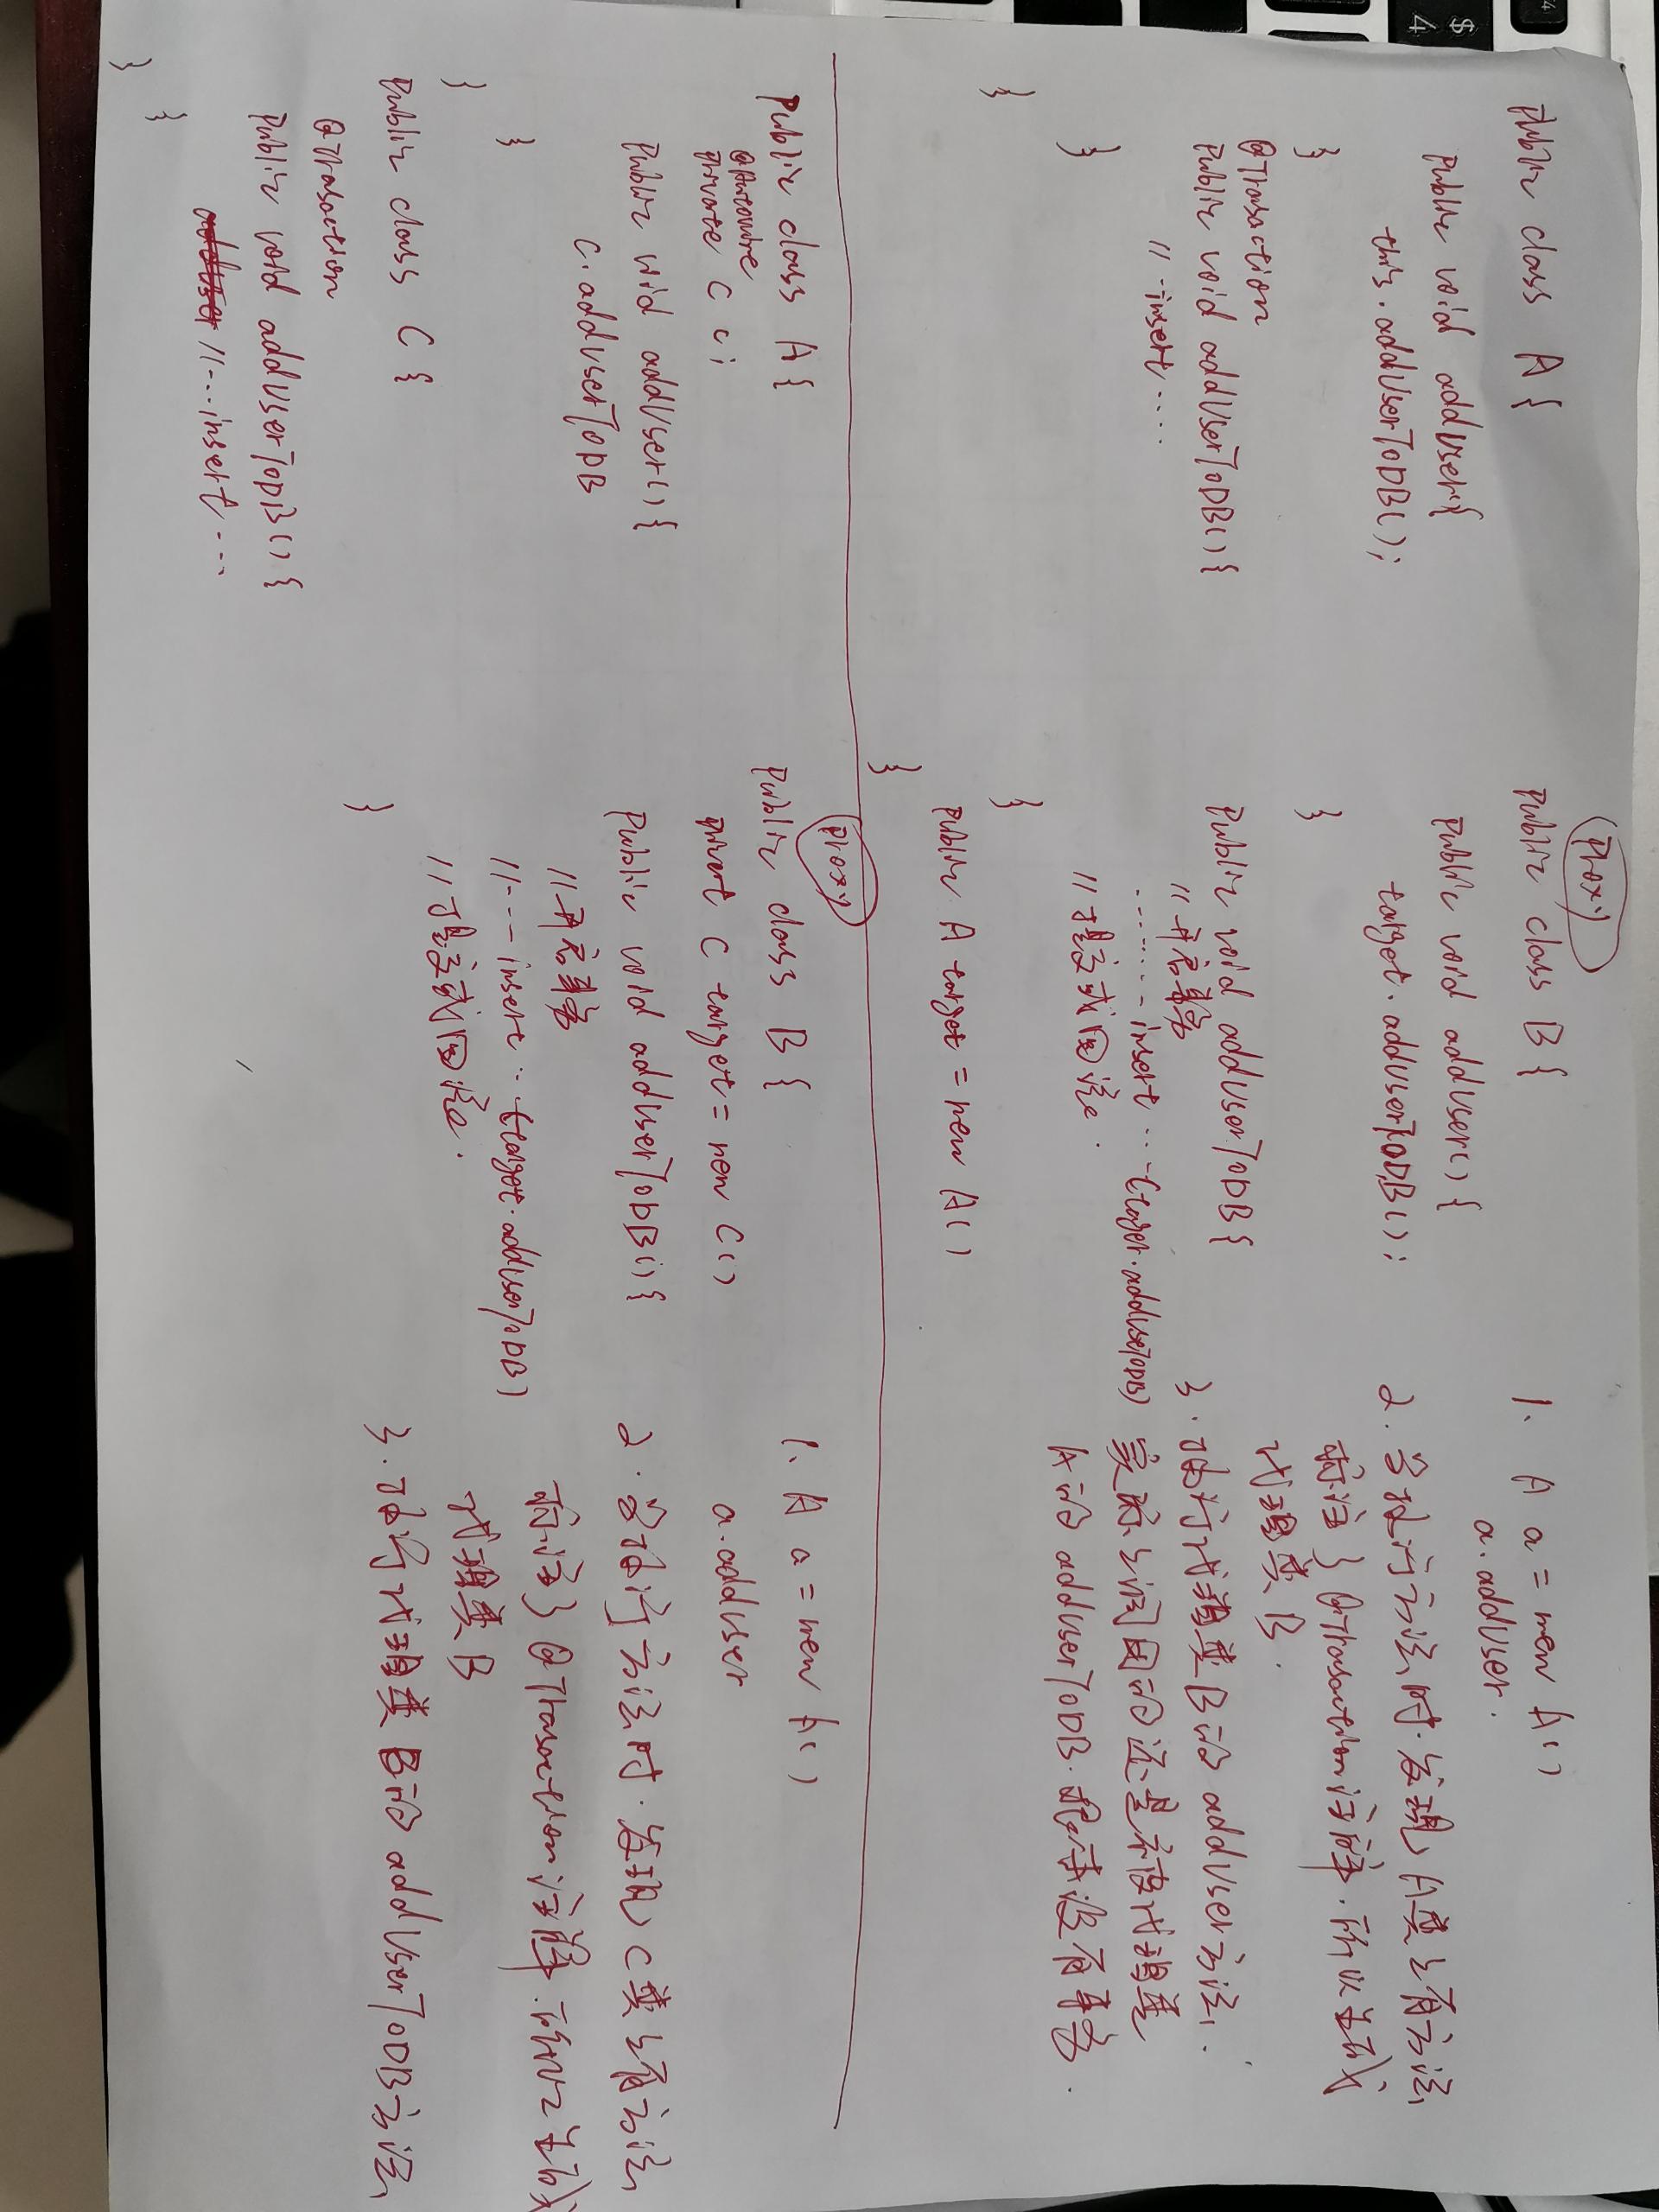 public class A {
public void addUser{
this.addUserToDB();
}
@Transaction
public void addUserToDB() {
// insert ....
}
}
(Proxy)
public class B {
public void addUser() {
target.addUserToDB();
}
public void addUserToDB {
// 开启事务
....... insert ... (target.addUserToDB)
// 提交或回滚.
}
public A target = new A()
}
1. A a = new A()
a.addUser.
2. 当执行方法时.发现A类上有方法
标注了@Transaction注解.所以生成
代理类B.
3. 执行代理类B的addUser方法.
实际上调用的还是未被代理类
A的addUserToDB.所以没有事务.
public class A {
@Autowire
private C c;
public void addUser() {
c.addUserToDB
}
}
public class C {
@Transaction
public void addUserToDB() {
//...insert ...
}
}
Proxy
public class B {
privert C target = new C()
public void addUserToDB() {
//开启事务
//--- insert .. (target.addUserToDB)
//提交或回滚.
}
1. A a = new A()
a.addUser
2. 当执行方法时.发现C类上有方法
标注了@Transaction注解.所以生成
代理类B
3. 执行代理类B的addUserToDB方法